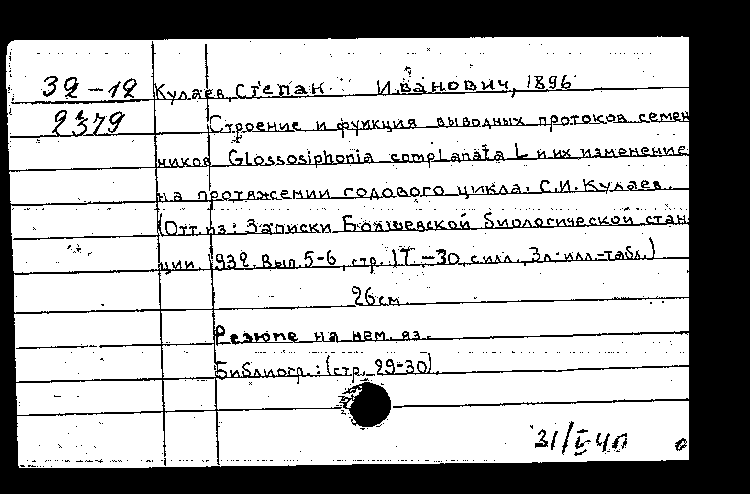 32-12 Кулаев, Степан Иванович, 1896
2379 Строение и функция выводных протоков семен
ников Glossosiphonia complanata L и их изменение
на протяжении годового цикла. С.И. Кулаев.
(Отт. из: Записки Болшевской биологической стан
ции. 1932. Вып. 5-6, стр. 17-30, с илл., 3л. илл.-табл.)
26см.
Резюме на нем. яз.
Библиогр.: (стр. 29-30).
31/I-40